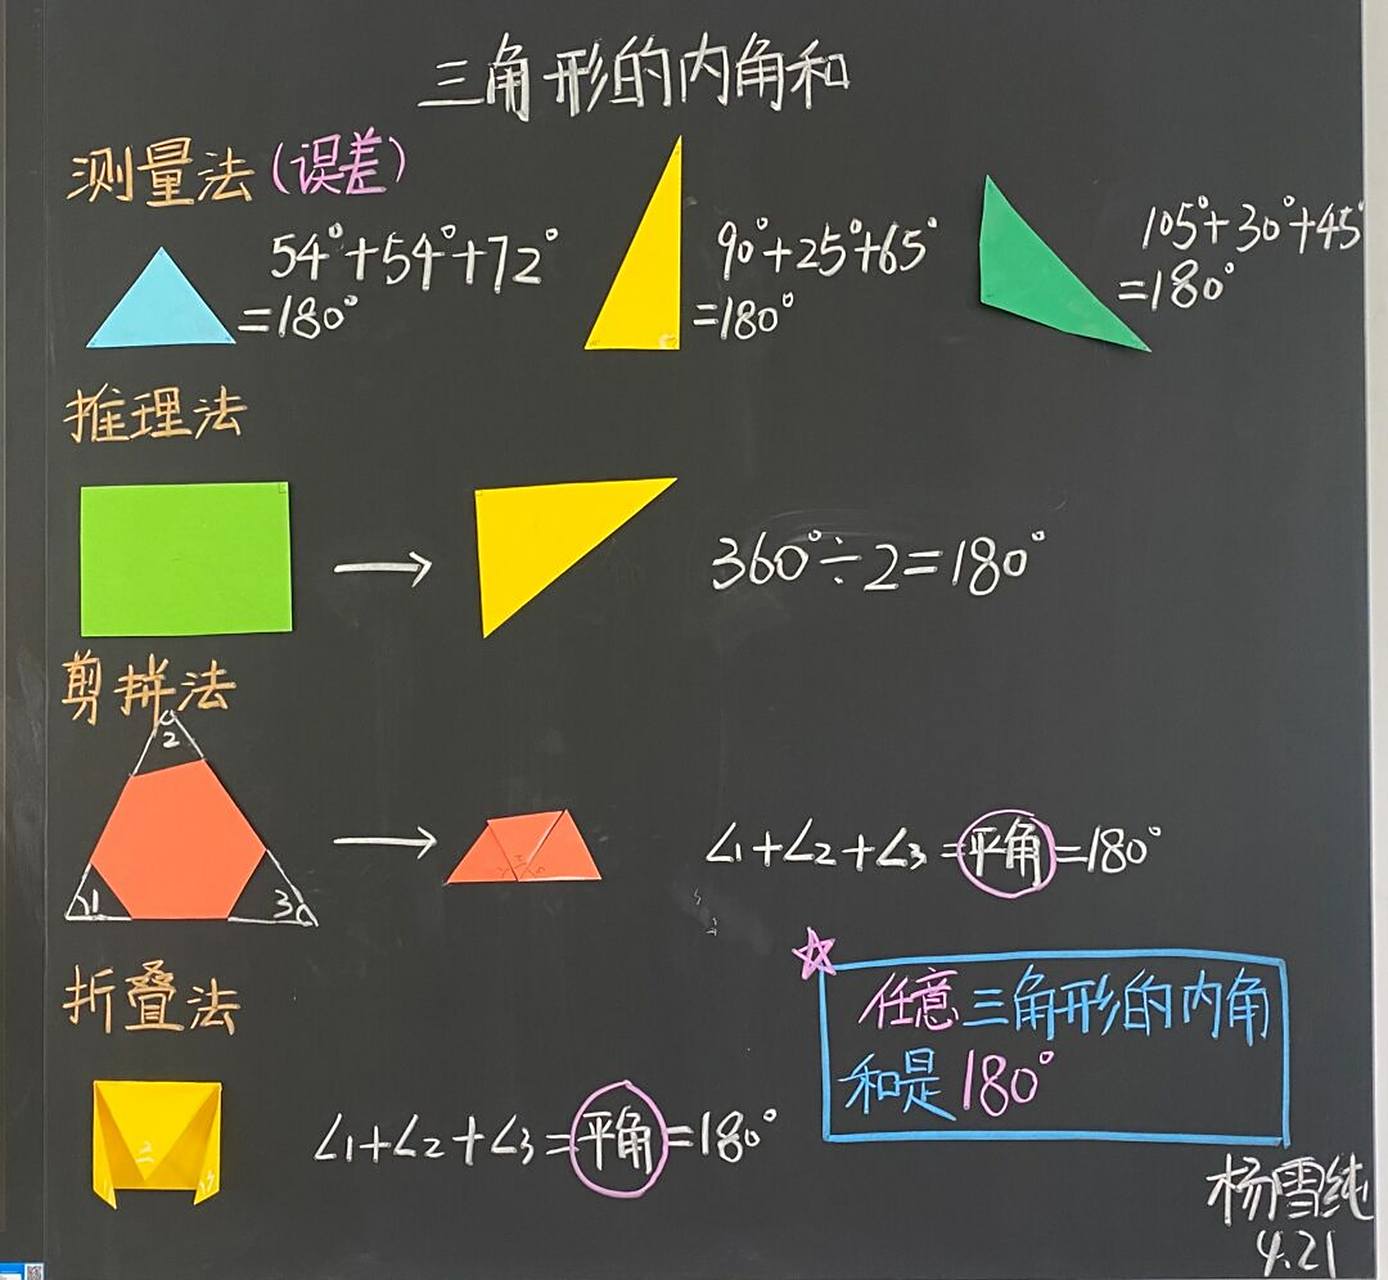 三角形的内角和
测量法(误差)
54°+54°+72°
=180°
90°+25°+65°
=180°
105°+30°+45°
=180°
推理法
360°÷2=180°
剪拼法
2
1
3
∠1+∠2+∠3=平角=180°
折叠法
2
∠1+∠2+∠3=平角=180°
任意三角形的内角
和是180°
杨雪纯
4.21